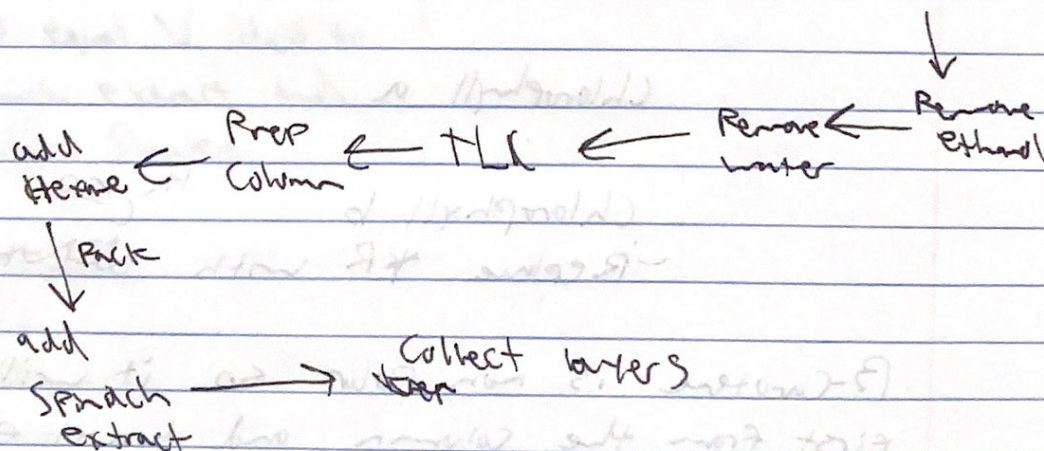 Remove
ethanol
Remove
water
TLC
Prep
Column
add
Hexane
Pack
add
Spinach
extract
Collect layers